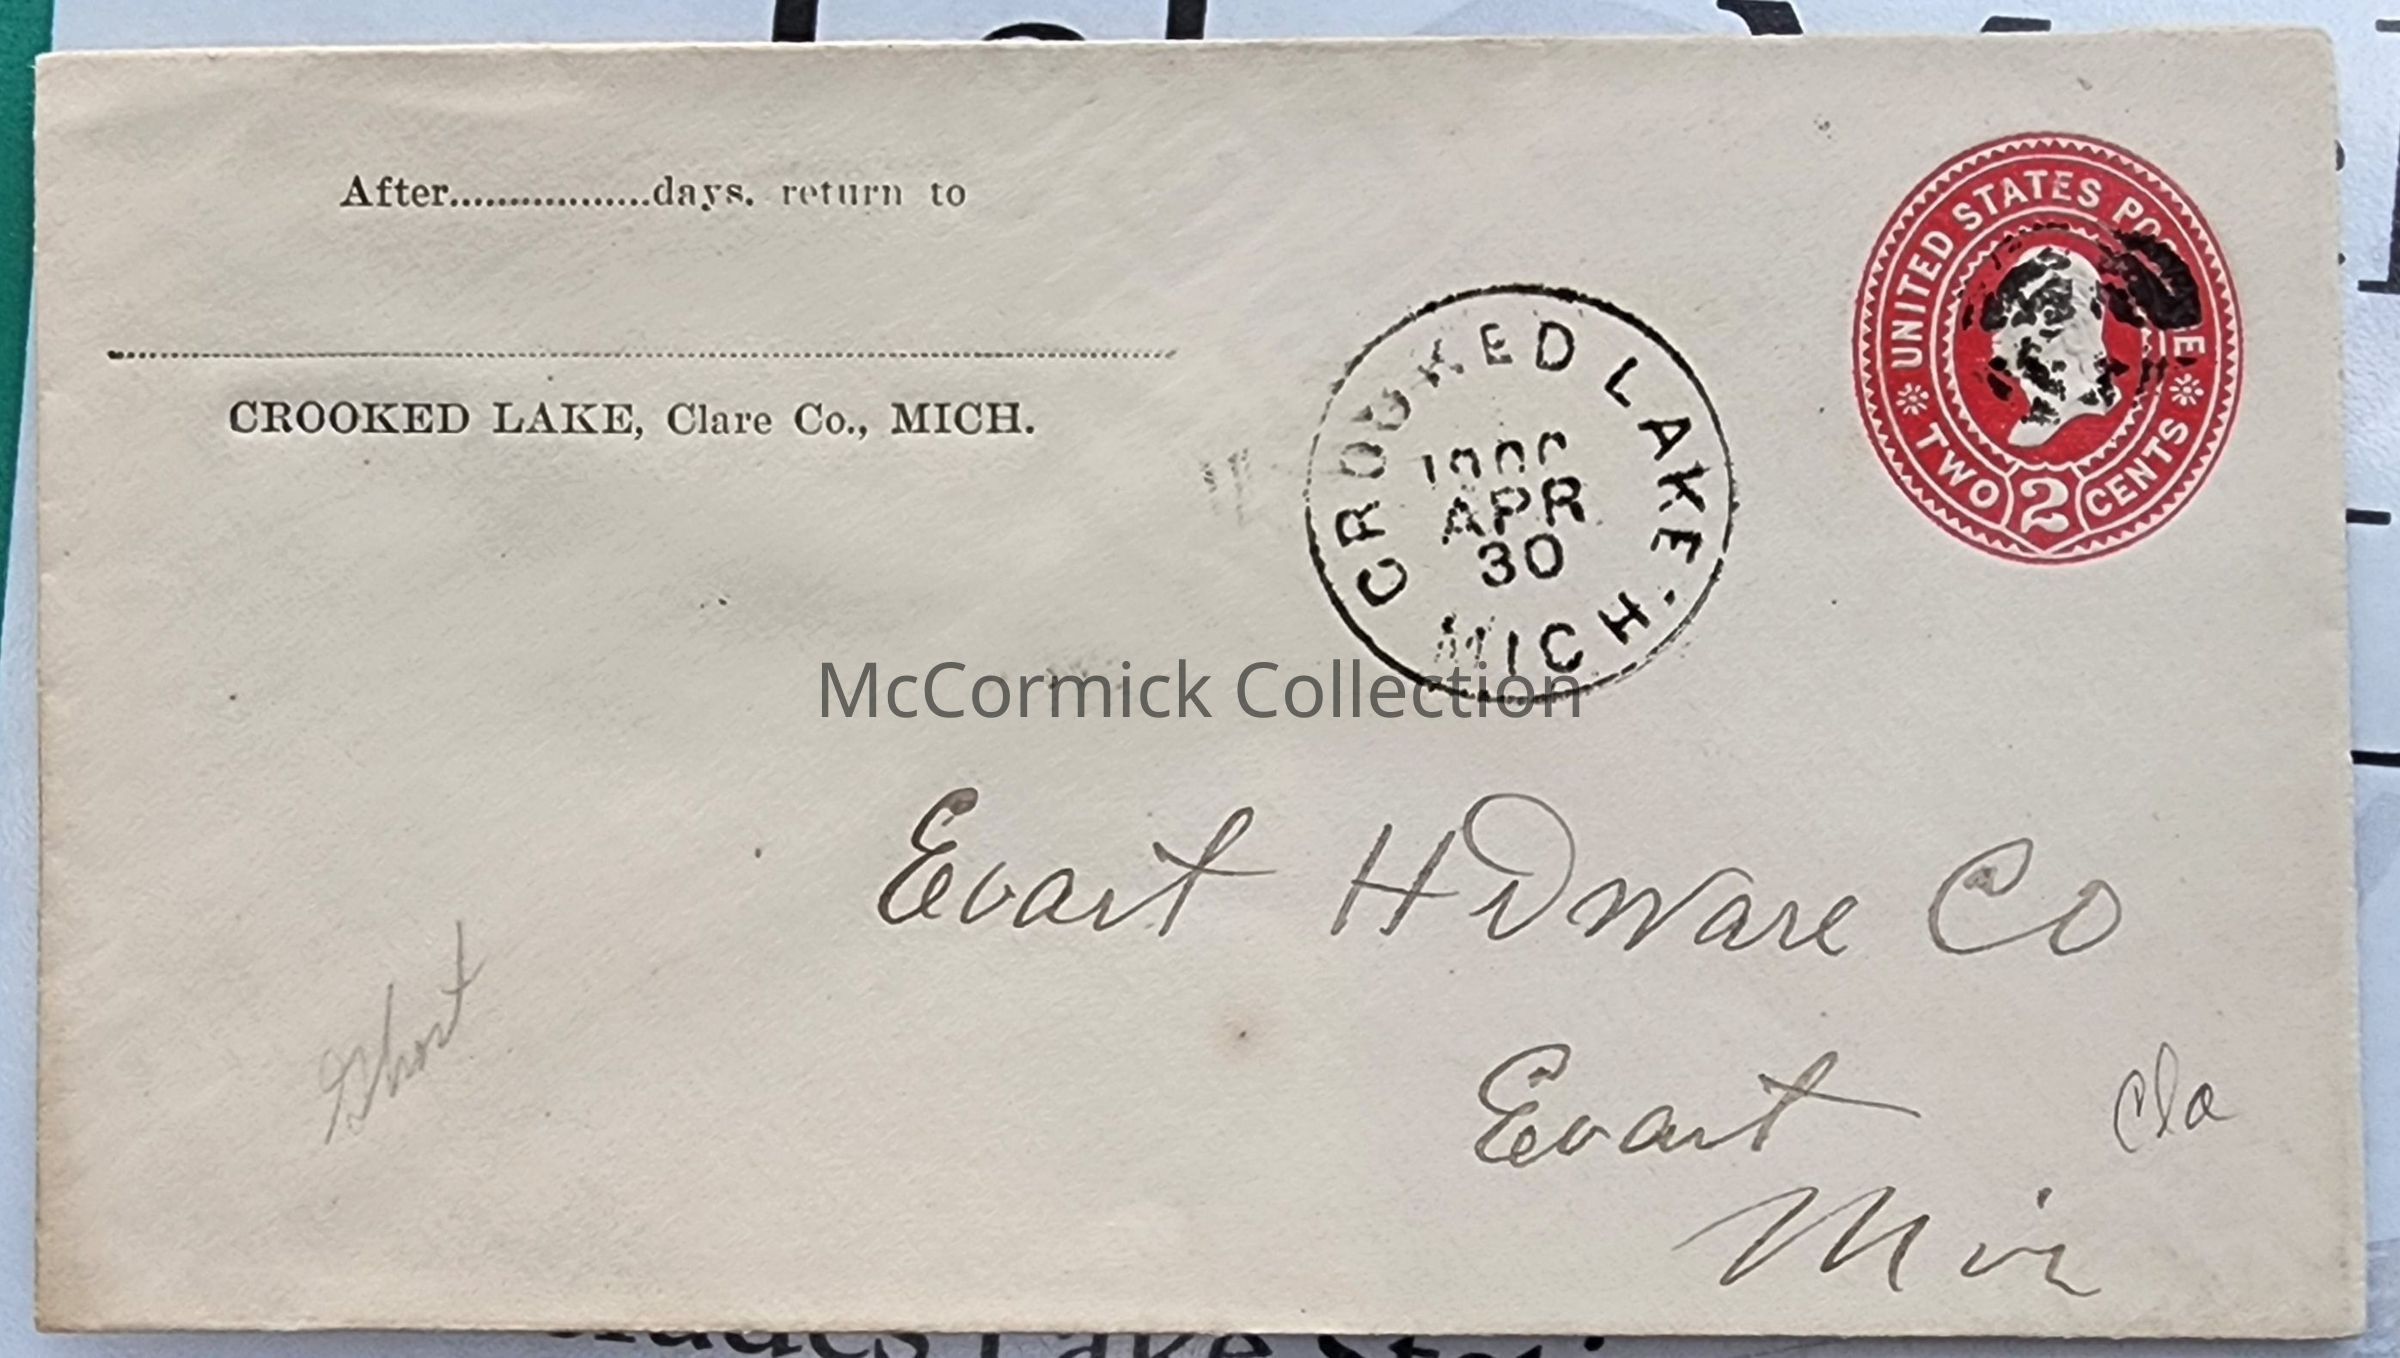 After.................days. return to
CROOKED LAKE, Clare Co., MICH.
CROOKED LAKE MICH.
APR
30
UNITED STATES POSTAGE
TWO 2 CENTS
McCormick Collection
Evart HDware Co
Evart
Mich
Short